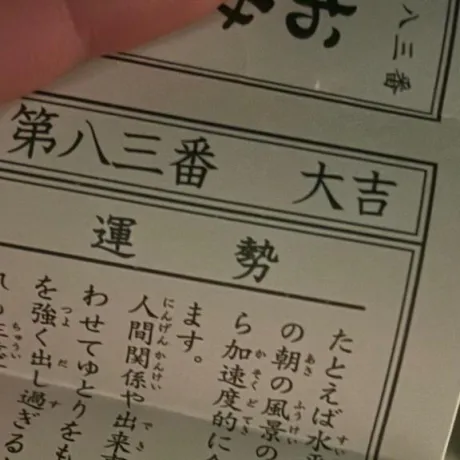 八三番
第八三番 大吉
運勢
たとえば水
の朝の風景の
ら加速度的に
ます。
人間関係や出来
わせてゆとりをも
を強く出し過ぎる